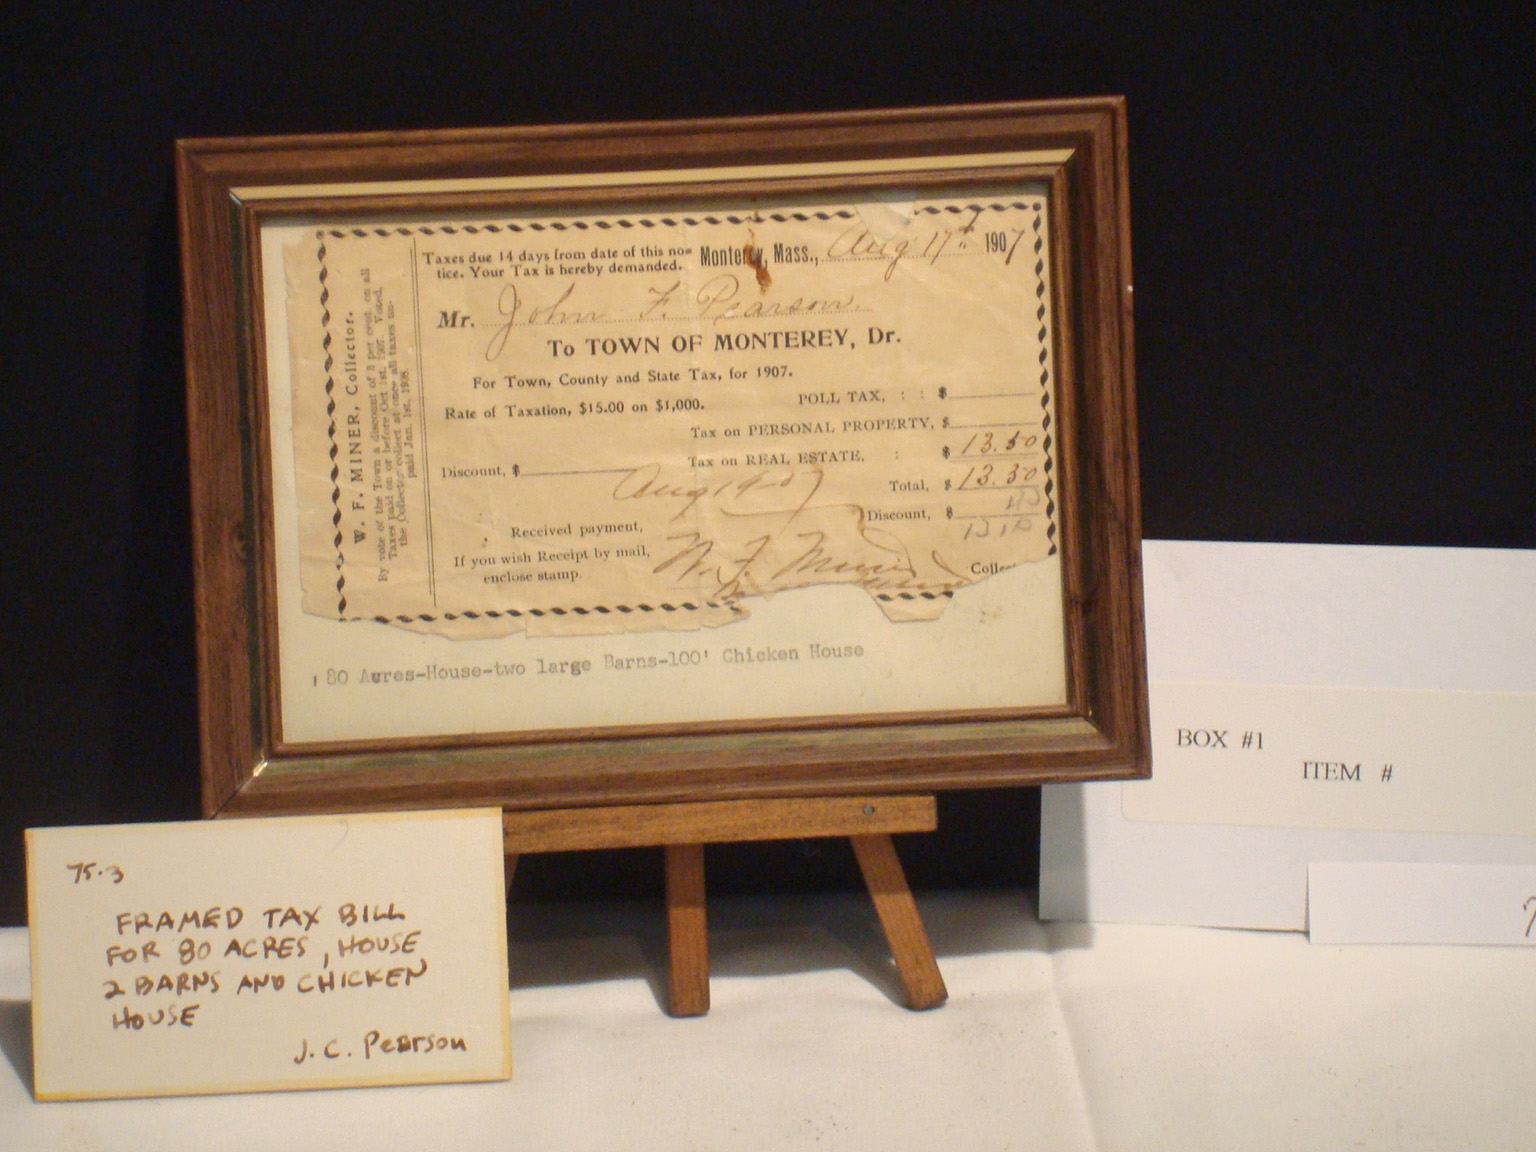 Taxes due 14 days from date of this no=
tice. Your Tax is hereby demanded.
Monterey, Mass., Aug 17th 1907
Mr. John F. Pearson
To TOWN OF MONTEREY, Dr.
For Town, County and State Tax, for 1907.
Rate of Taxation, $15.00 on $1,000.
POLL TAX, : : $
Tax on PERSONAL PROPERTY, $
Tax on REAL ESTATE, : $ 13.50
Discount, $
Total, $ 13.50
Aug 19-07
Discount, $ 40
13 10
Received payment,
If you wish Receipt by mail,
enclose stamp.
W. F. Miner
W. F. MINER, Collector.
By vote of the Town a discount of 3 per cent. on all
Taxes paid on or before Oct 1st. 1907. Voted,
the Collector collect at once all taxes un-
paid Jan. 1st, 1908.
80 Acres-House-two large Barns-100' Chicken House
75.3
FRAMED TAX BILL
FOR 80 ACRES, HOUSE
2 BARNS AND CHICKEN
HOUSE
J. C. Pearson
BOX #1
ITEM #